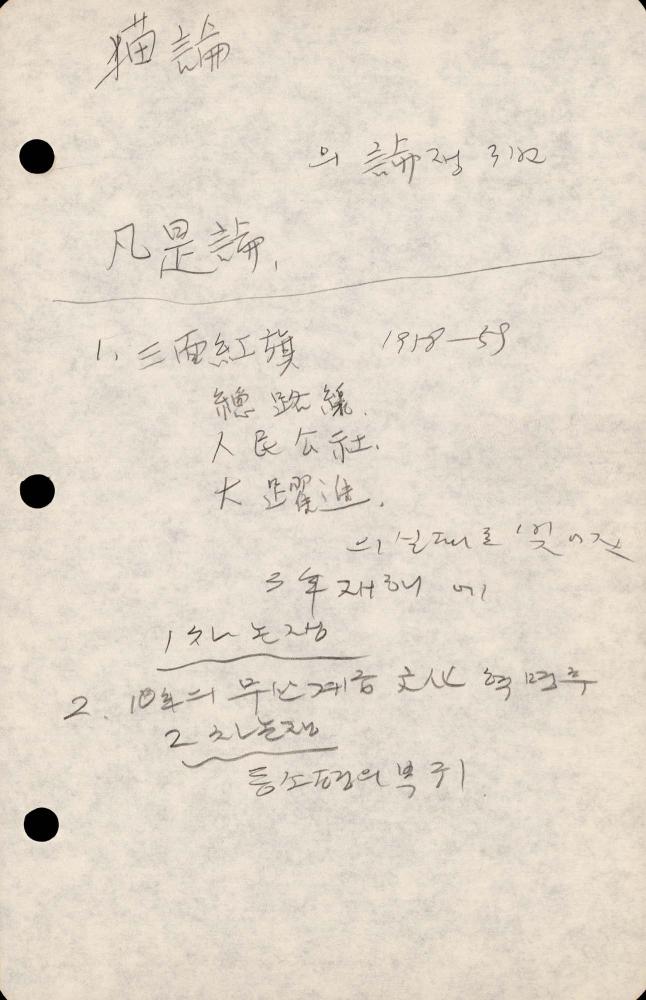 猫論
의 論쟁
凡是論,
1. 三面紅旗 1958-59
總路線.
人民公社.
大躍進.
의 실패로 빚어진
3年 재해에
1차 논쟁
2. 10年의 무산계급 文化 혁명후
2차논쟁
등소평의 복귀